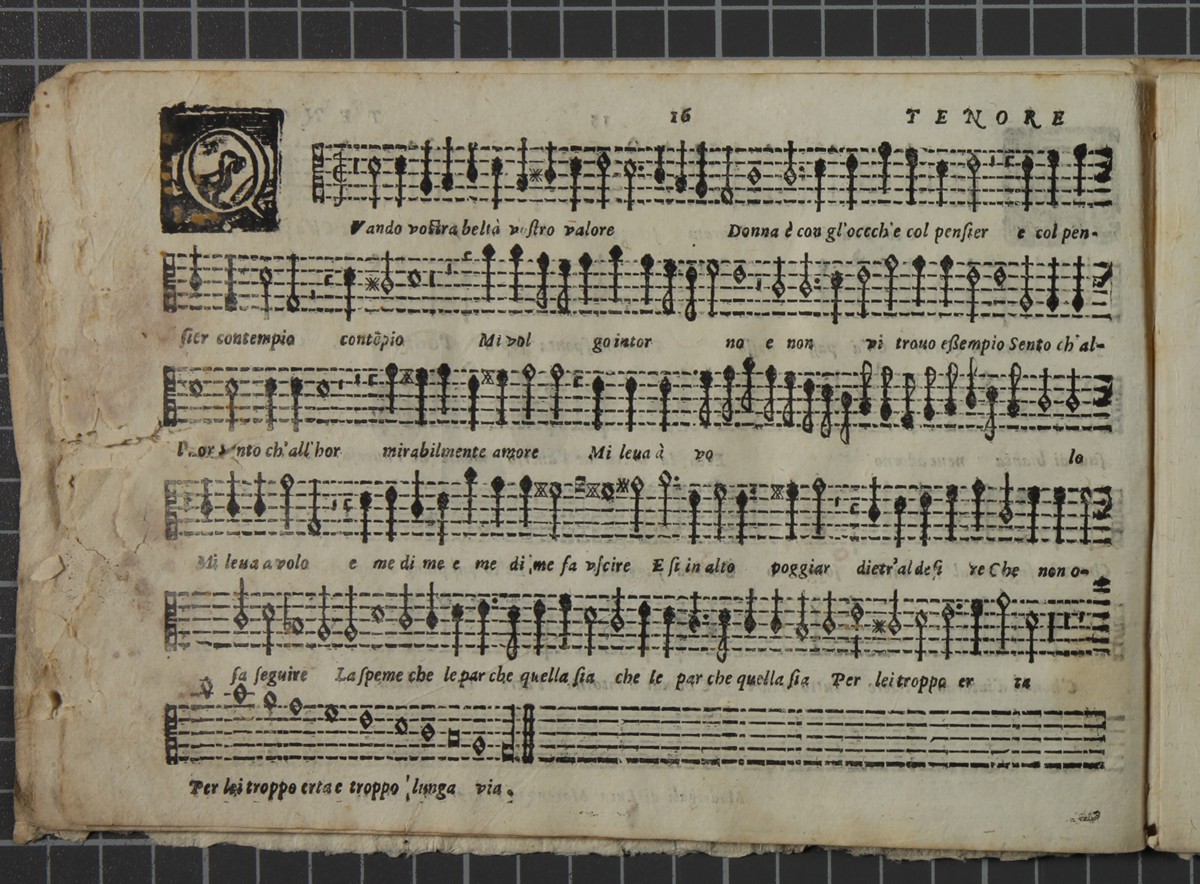 16 TENORE
QVando vostra beltà vostro valore Donna è con gl'occch'e col pensier e col pen-
sier contempio contẽpio Mi vol go intor no e non vi trouo essempio Sento ch'al-
l'hor sento ch'all'hor mirabilmente amore Mi leua à vo lo
Mi leua a volo e me di me e me di me fa vscire E si in alto poggiar dietr'al desi re Che non o-
sa seguire La speme che le par che quella sia che le par che quella sia Per lei troppo er ta
Per lei troppo erta e troppo lunga via.